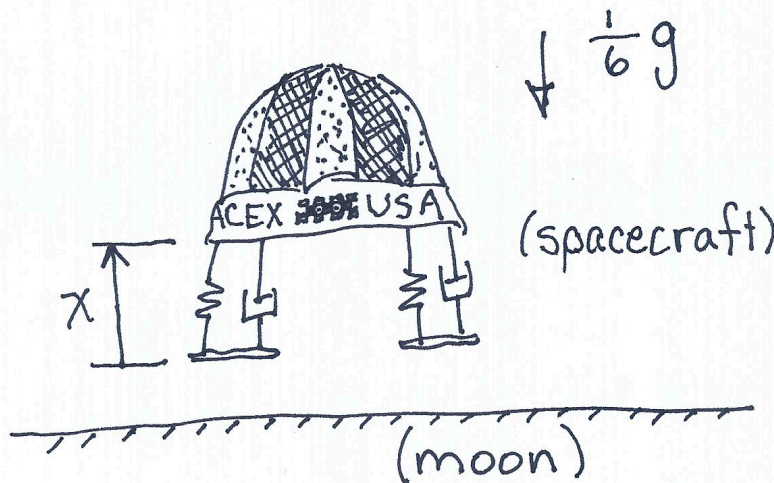 1/6 g
ACEX USA
(spacecraft)
x
(moon)